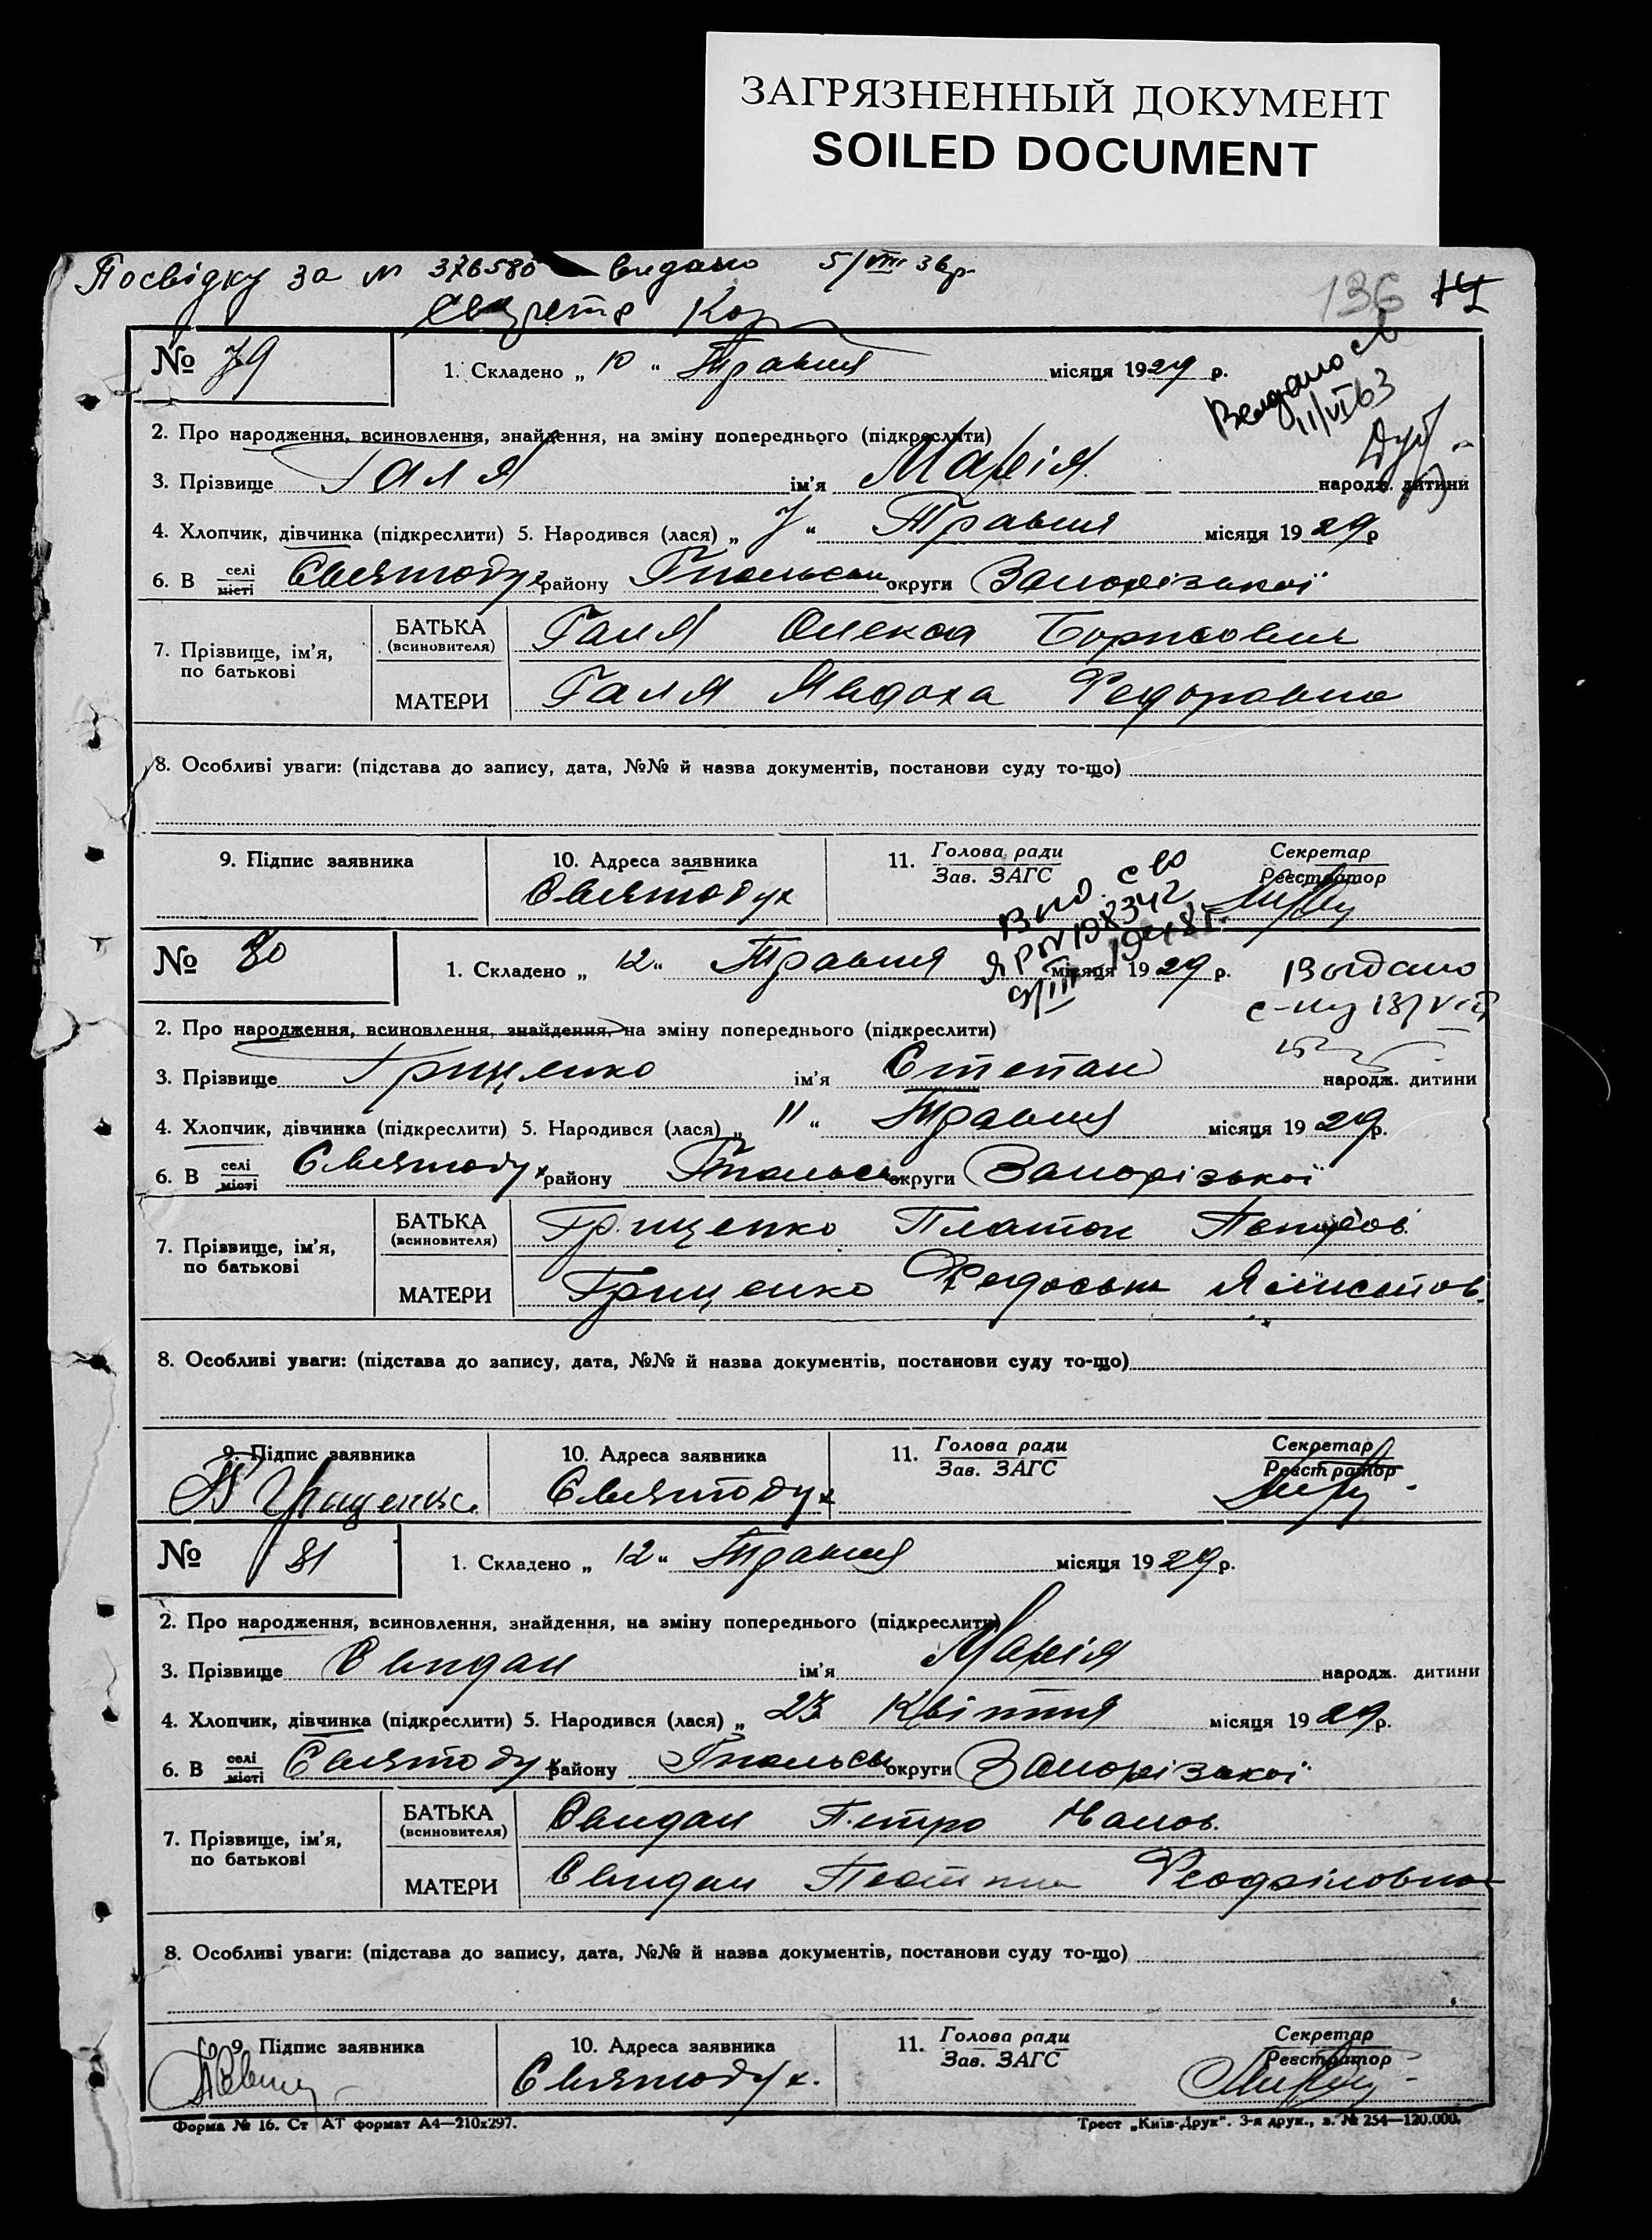 ЗАГРЯЗНЕННЫЙ ДОКУМЕНТ
SOILED DOCUMENT
Посвідку за № 376580 видано 5/VIII 36р.
136
№ 79
1. Складено „ 10 “ Травня місяця 1929 р.
Выдано
11/VI 63
2. Про народження, всиновлення, знайдення, на зміну попереднього (підкреслити)
3. Прізвище Галя ім'я Марія народж. дитини
4. Хлопчик, дівчинка (підкреслити) 5. Народився (лася) „ 7 “ Травня місяця 1929 р
6. В селі місті Святодух району округи Запорізької
7. Прізвище, ім'я, по батькові
БАТЬКА (всиновителя) Галя Олекса Борисович
МАТЕРИ Галя Явдоха Федоровна
8. Особливі уваги: (підстава до запису, дата, №№ й назва документів, постанови суду то-що)
9. Підпис заявника
10. Адреса заявника
Святодух
11. Голова ради
Зав. ЗАГС
Секретар
Реєстратор
№ 80
1. Складено „ 12 “ Травня місяця 1929 р.
Выдано
2. Про народження, всиновлення, знайдення, на зміну попереднього (підкреслити)
3. Прізвище Грищенко ім'я Степан народж. дитини
4. Хлопчик, дівчинка (підкреслити) 5. Народився (лася) „ 11 “ Травня місяця 1929 р.
6. В селі місті Святодух району округи Запорізької
7. Прізвище, ім'я, по батькові
БАТЬКА (всиновителя) Грищенко Платон
МАТЕРИ Грищенко
8. Особливі уваги: (підстава до запису, дата, №№ й назва документів, постанови суду то-що)
9. Підпис заявника
П Грищенко
10. Адреса заявника
Святодух
11. Голова ради
Зав. ЗАГС
Секретар
Реєстратор
№ 81
1. Складено „ 12 “ Травня місяця 1929 р.
2. Про народження, всиновлення, знайдення, на зміну попереднього (підкреслити)
3. Прізвище Свидан ім'я Марія народж. дитини
4. Хлопчик, дівчинка (підкреслити) 5. Народився (лася) „ 23 Квітня місяця 1929 р.
6. В селі місті Святодух району округи Запорізької
7. Прізвище, ім'я, по батькові
БАТЬКА (всиновителя) Свидан Петро
МАТЕРИ Свидан
8. Особливі уваги: (підстава до запису, дата, №№ й назва документів, постанови суду то-що)
9. Підпис заявника
10. Адреса заявника
Святодух.
11. Голова ради
Зав. ЗАГС
Секретар
Реєстратор
Форма № 16. Ст АТ формат А4—210х297.
Трест „Київ-Друк“. 3-я друк., з. № 254—120.000.